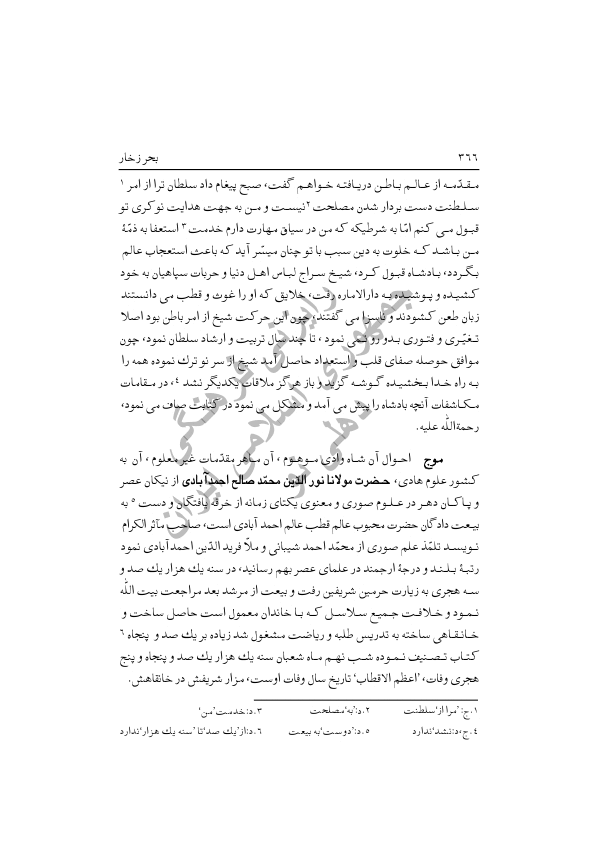 ۳۶۶ بحر زخار
مقدّمه از عالم باطن دریافته خواهم گفت، صبح پیغام داد سلطان ترا از امر ۱
سلطنت دست بردار شدن مصلحت ۲ نیست و من به جهت هدایت نوکری تو
قبول می کنم امّا به شرطیکه که من در سیاق مهارت دارم خدمت ۳ استعفا به ذمّهٔ
من باشد که خلوت به دین سبب با تو چنان میسّر آید که باعث استعجاب عالم
بگردد، بادشاه قبول کرد، شیخ سراج لباس اهل دنیا و حربات سپاهیان به خود
کشیده و پوشیده به دارالاماره رفت، خلایق که او را غوث و قطب می دانستند
زبان طعن کشودند و ناسزا می گفتند، چون این حرکت شیخ از امر باطن بود اصلا
تغیّری و فتوری بدو رو نمی نمود، تا چند سال تربیت و ارشاد سلطان نمود، چون
موافق حوصله صفای قلب و استعداد حاصل آمد شیخ از سر نو ترك نموده همه را
به راه خدا بخشیده گوشه گزید و باز هرگز ملاقات یکدیگر نشد ۴، در مقامات
مکاشفات آنچه بادشاه را پیش می آمد و مشکل می نمود در کتابت صاف می نمود،
رحمة‌اللّه علیه.
موج احوال آن شاه وادی موهوم، آن ماهر مقدّمات غیر معلوم، آن به
کشور علوم هادی، حضرت مولانا نور الدّین محمّد صالح احمدآبادی از نیکان عصر
و پاکان دهر در علوم صوری و معنوی یکتای زمانه از خرقه یافتگان و دست ۵ به
بیعت دادگان حضرت محبوب عالم قطب عالم احمد آبادی است، صاحب مآثر الکرام
نویسد تلمّذ علم صوری از محمّد احمد شیبانی و ملّا فرید الدّین احمدآبادی نمود
رتبهٔ بلند و درجهٔ ارجمند در علمای عصر بهم رسانید، در سنه یك هزار یك صد و
سه هجری به زیارت حرمین شریفین رفت و بیعت از مرشد بعد مراجعت بیت اللّه
نمود و خلافت جمیع سلاسل که با خاندان معمول است حاصل ساخت و
خانقاهی ساخته به تدریس طلبه و ریاضت مشغول شد زیاده بر یك صد و پنجاه ۶
کتاب تصنیف نموده شب نهم ماه شعبان سنه یك هزار یك صد و پنجاه و پنج
هجری وفات، ’اعظم الاقطاب‘ تاریخ سال وفات اوست، مزار شریفش در خانقاهش.
۱.ج: ’مرا از‘ سلطنت ۲.د: ’به‘ مصلحت ۳.د: خدمت ’من‘
۴.ج، د: نشد ’ندارد ۵.د: ’دوست‘ به بیعت ۶.د: از ’یك صد‘ تا ’سنه یك هزار‘ ندارد
رایزنی فرهنگی
جمهوری اسلامی ایران
دهلی نو